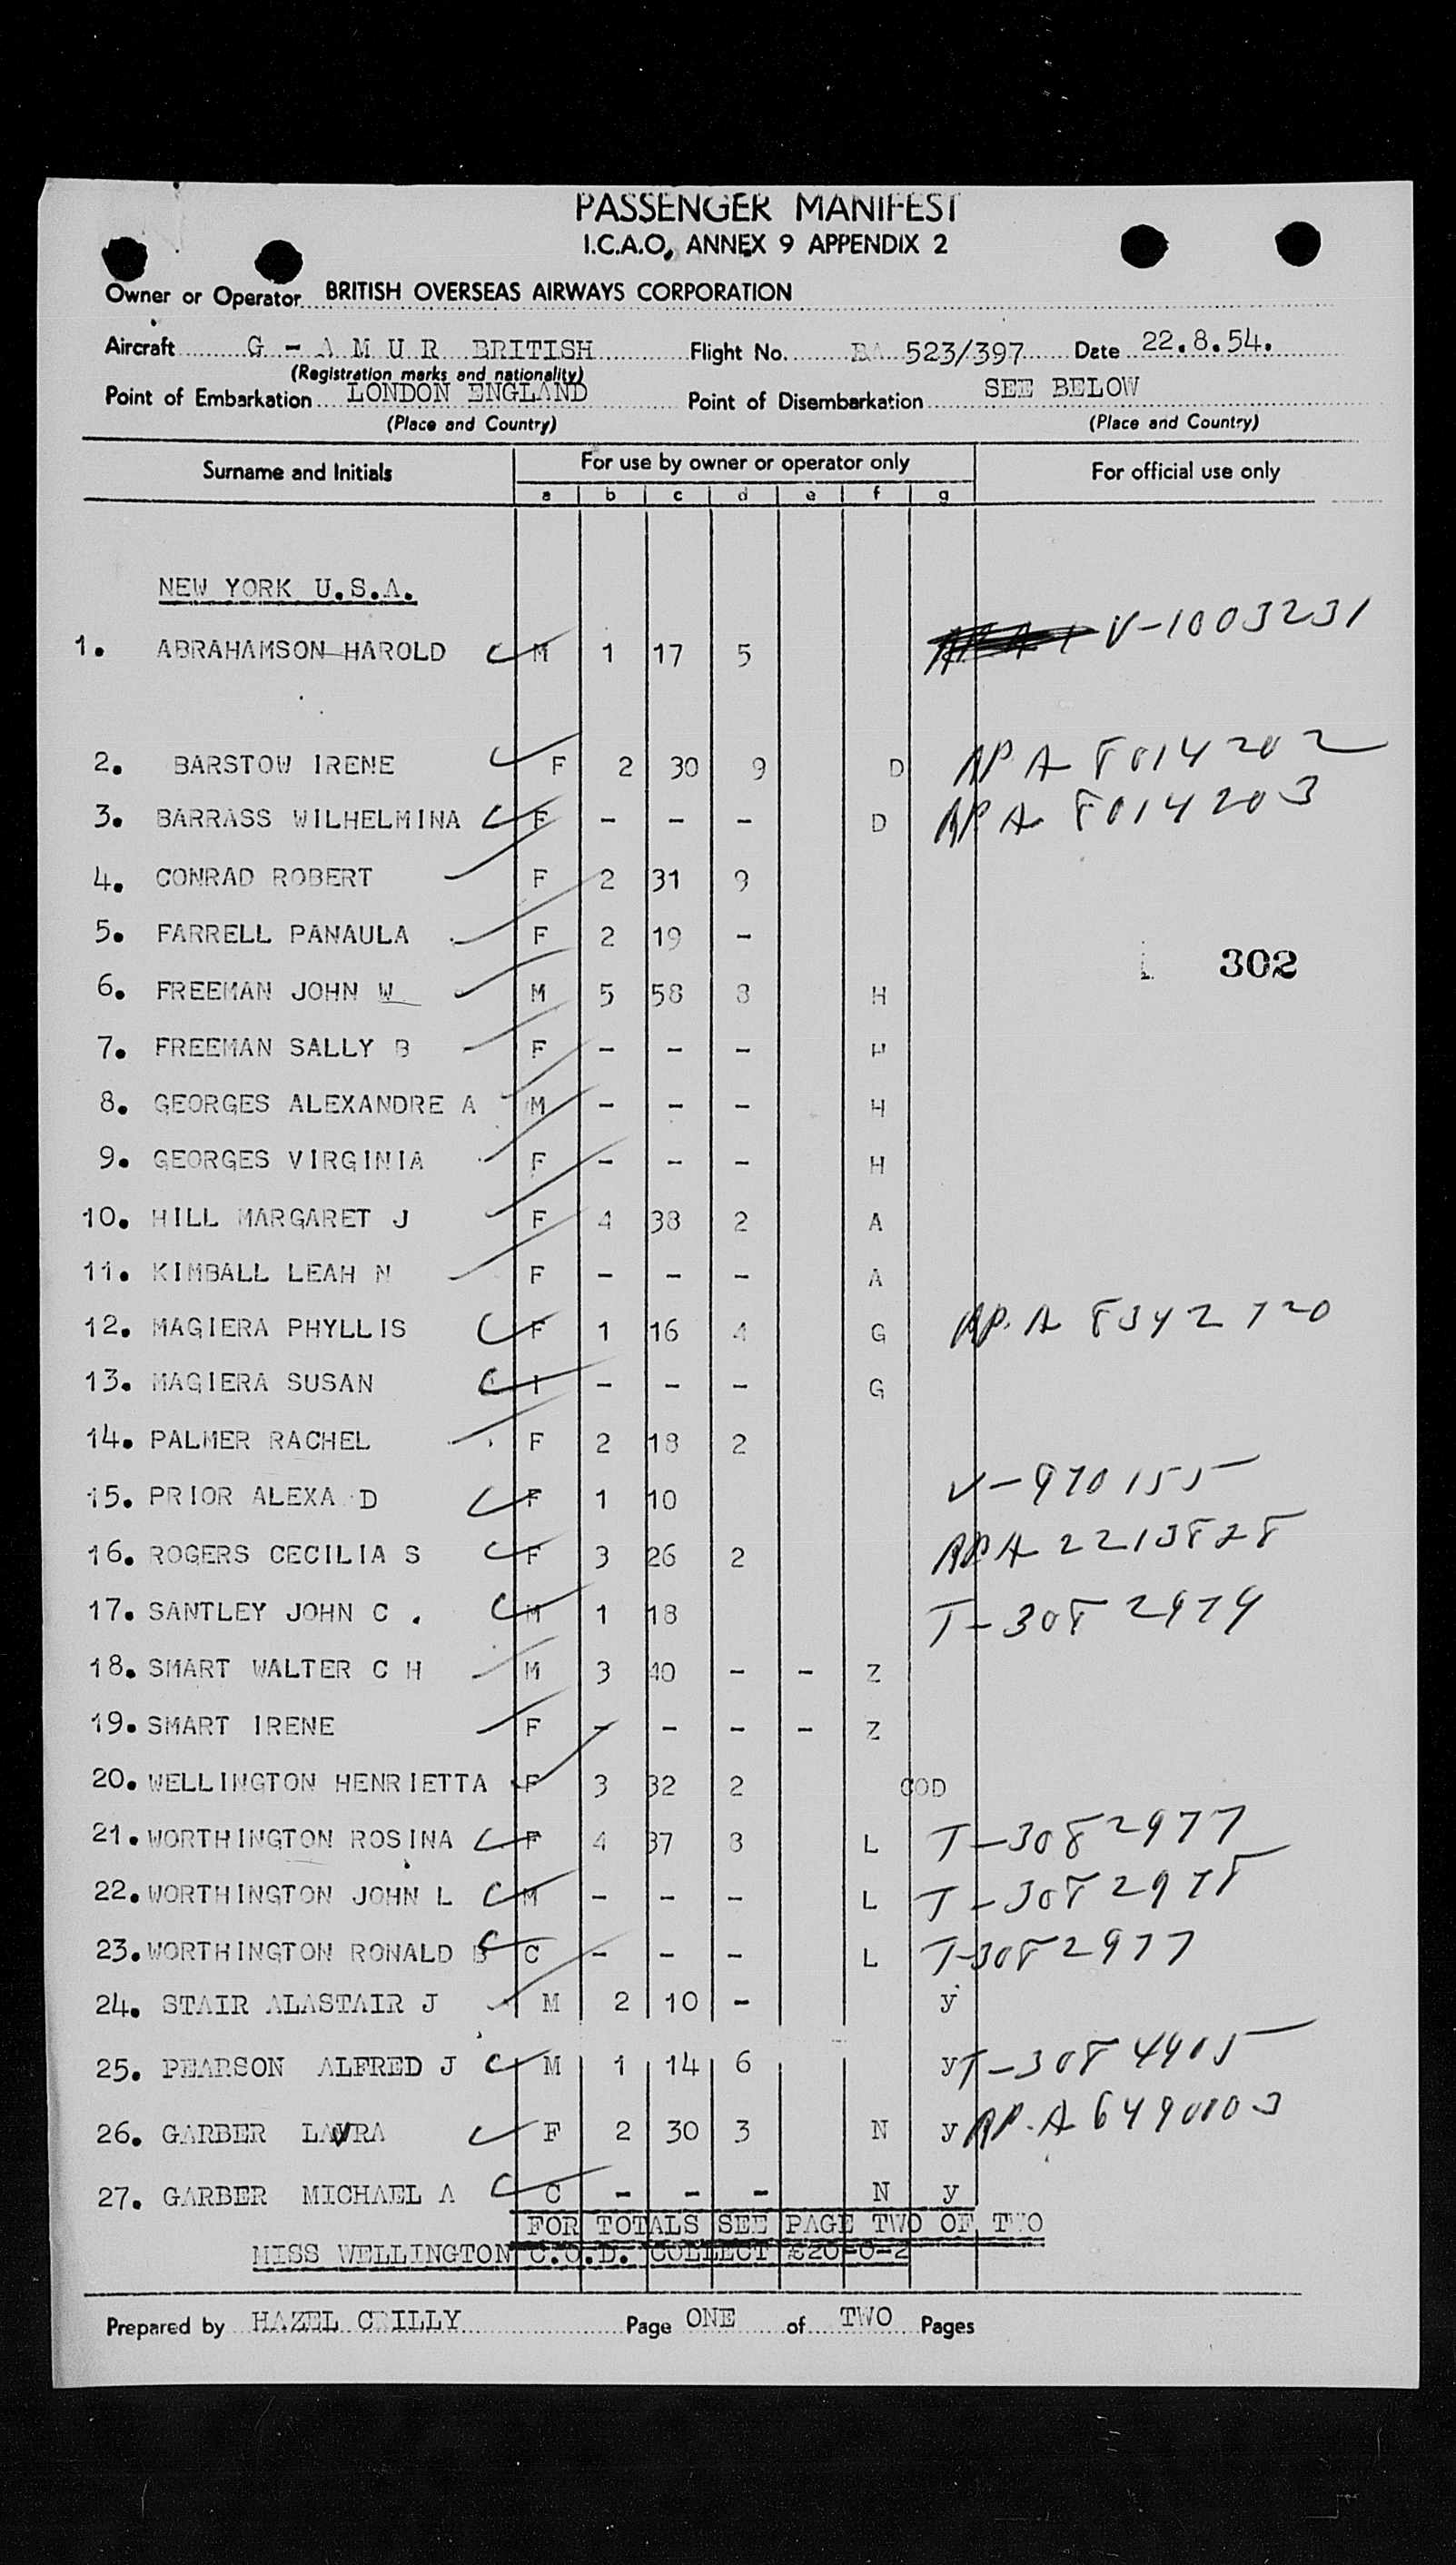 PASSENGER MANIFEST
I.C.A.O. ANNEX 9 APPENDIX 2
Owner or Operator BRITISH OVERSEAS AIRWAYS CORPORATION
Aircraft G - A M U R BRITISH Flight No. BA 523/397 Date 22.8.54.
(Registration marks and nationality)
Point of Embarkation LONDON ENGLAND Point of Disembarkation SEE BELOW
(Place and Country) (Place and Country)
Surname and Initials For use by owner or operator only For official use only
a b c d e f g
NEW YORK U.S.A.
1. ABRAHAMSON HAROLD C M 1 17 5 V-1003231
2. BARSTOW IRENE C F 2 30 9 D RP.A 8014202
3. BARRASS WILHELMINA C F - - - D RP A 8014203
4. CONRAD ROBERT F 2 31 9
5. FARRELL PANAULA F 2 19 -
302
6. FREEMAN JOHN W M 5 58 8 H
7. FREEMAN SALLY B F - - - H
8. GEORGES ALEXANDRE A M - - - H
9. GEORGES VIRGINIA F - - - H
10. HILL MARGARET J F 4 38 2 A
11. KIMBALL LEAH N F - - - A
12. MAGIERA PHYLLIS C F 1 16 4 G RP.A 8342720
13. MAGIERA SUSAN C I - - - G
14. PALMER RACHEL F 2 18 2
15. PRIOR ALEXA D C F 1 10 V-970155
16. ROGERS CECILIA S C F 3 26 2 RP A 2213828
17. SANTLEY JOHN C . C M 1 18 T-3082979
18. SMART WALTER C H M 3 40 - - Z
19. SMART IRENE F - - - - Z
20. WELLINGTON HENRIETTA F 3 32 2 COD
21. WORTHINGTON ROSINA C F 4 37 8 L T-3082977
22. WORTHINGTON JOHN L C M - - - L T-3082978
23. WORTHINGTON RONALD B C C - - - L T-3082977
24. STAIR ALASTAIR J M 2 10 - y
25. PEARSON ALFRED J C M 1 14 6 y T-3084905
26. GARBER LAURA C F 2 30 3 N y RP.A 6490103
27. GARBER MICHAEL A C C - - - N y
FOR TOTALS SEE PAGE TWO OF TWO
MISS WELLINGTON C.O.D. COLLECT £20-0-2
Prepared by HAZEL CRILLY Page ONE of TWO Pages